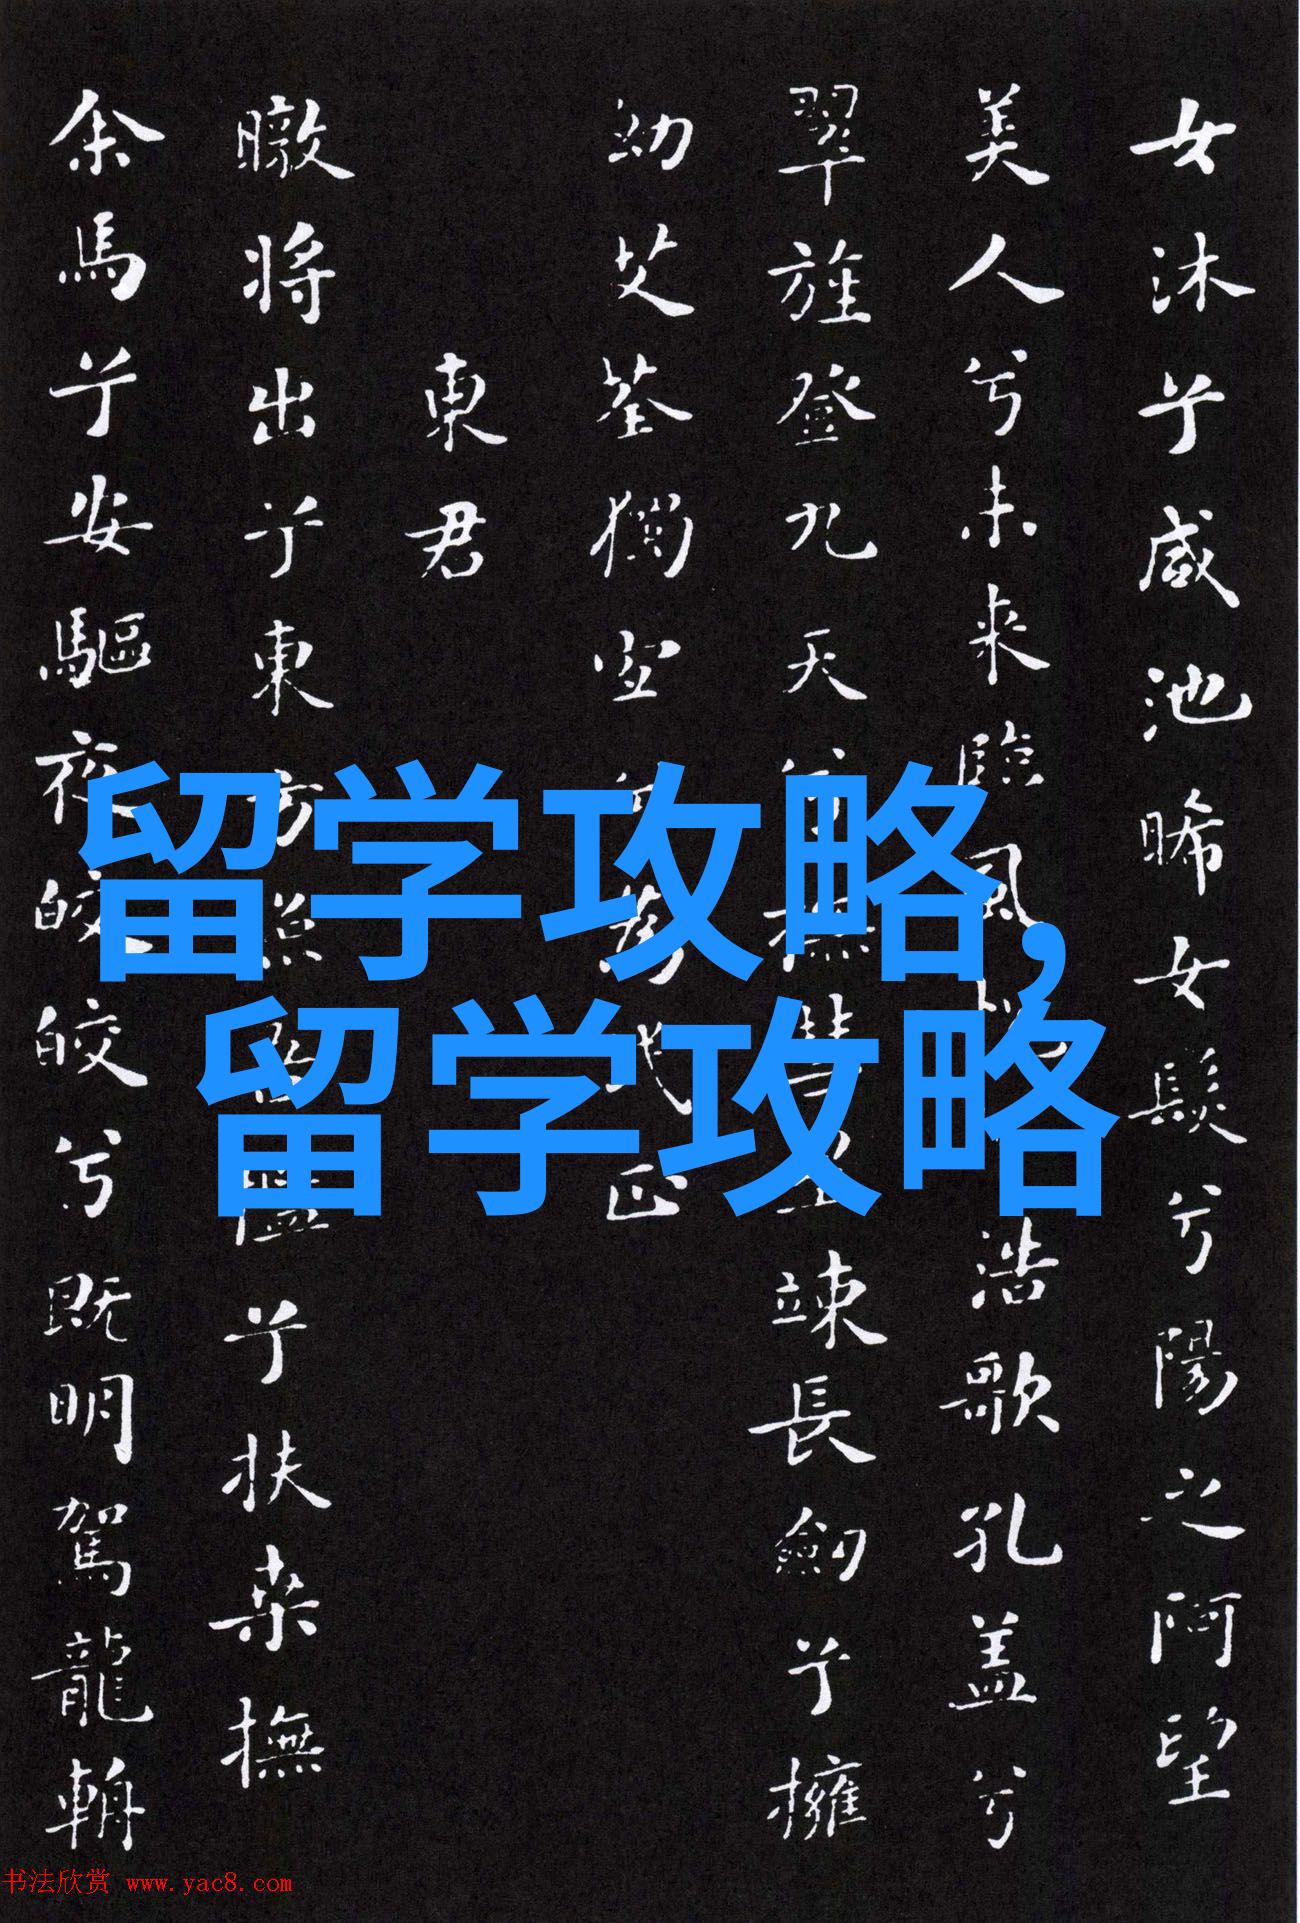 女沐兮咸池晞女髮兮陽之阿望
美人兮未来臨風怳浩歌孔盖兮
翠旌登九天兮撫彗星竦長劍兮擁
幼艾荃獨宜兮為民正
東君
暾将出兮東方照吾檻兮扶桑撫
余馬兮安驅夜皎皎兮既明駕龍輈
留学攻略,
留学攻略
书法欣赏 www.yac8.com